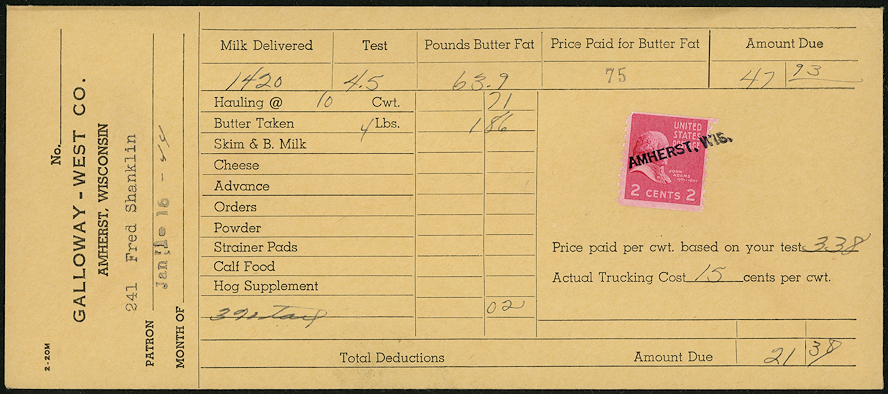 No.
GALLOWAY - WEST CO.
AMHERST, WISCONSIN
241 Fred Shanklin
PATRON
MONTH OF
2-20M
Milk Delivered Test Pounds Butter Fat Price Paid for Butter Fat Amount Due
1420 4.5 63.9 75 47 93
Hauling @ 10 Cwt. 71
Butter Taken 4 Lbs. 1 86
Skim & B. Milk
Cheese
Advance
Orders
Powder
Strainer Pads
Calf Food
Hog Supplement
02
UNITED
STATES
JOHN
ADAMS
2 CENTS 2
AMHERST, WIS.
Price paid per cwt. based on your test 3.38
Actual Trucking Cost 15 cents per cwt.
Total Deductions Amount Due 21 38